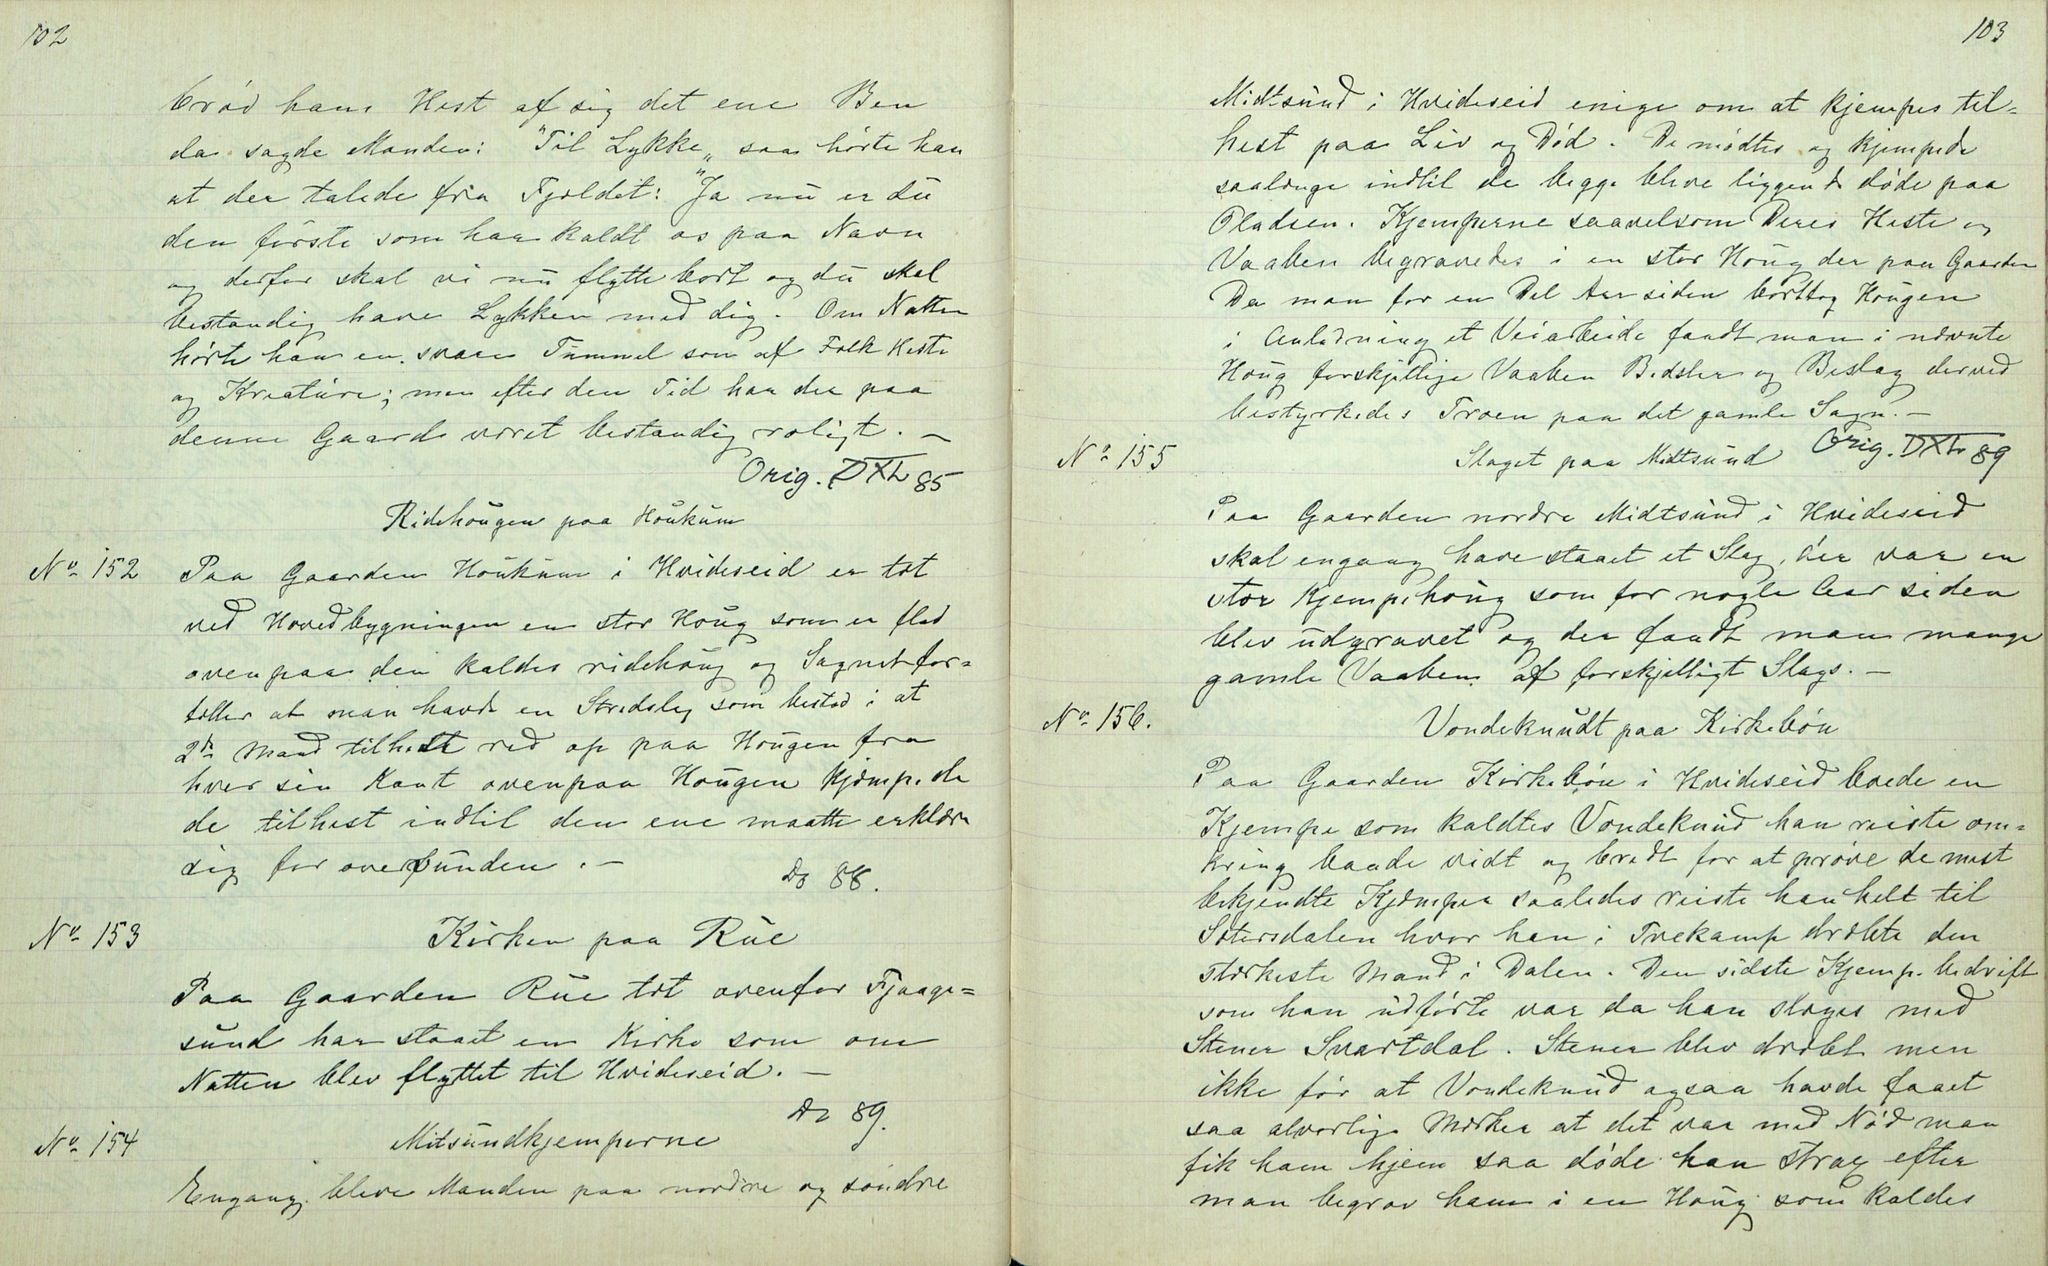 102
brød hans Hest af sig det ene Ben
da sagde Manden: "Til Lykke„ saa hørte han
at der talede fra Fjeldet: "Ja nu er du
den første som har kaldt os paa Navn
og derfor skal vi nu flytte bort og du skal
bestandig have Lykken med dig. Om Natten
hørte han en svare Tummel som af Folk Heste
og Kreature; men efter den Tid har der paa
denne Gaard været bestandig roligt. –
Orig. DXL 85
Ridehougen paa Houkum
No 152
Paa Gaarden Houkum i Hvideseid er tæt
ved Hovedbygningen en stor Houg som er flad
ovenpaa den kaldes ridehoug og Sagnet for=
tæller at man havde en Stredsleg som bestod i at
2de Mand tilhest red op paa Hougen fra
hver sin Kant ovenpaa Hougen kjæmpede
de tilhest indtil den ene maatte erklære
sig for overvunden. –
Do 88.
No 153
Kirken paa Rue
Paa Gaarden Rue tæt ovenfor Fjaage=
sund har staaet en Kirke som om
Natten blev flyttet til Hvideseid. –
Do 89.
No 154
Mitsundkjemperne
Engang bleve Manden paa nordre og søndre
103
Midtsund i Hvideseid enige om at kjempes til=
hest paa Liv og Død. De mødtes og kjempede
saalænge indtil de begge bleve liggende døde paa
Pladsen. Kjemperne saavelsom Deres Heste og
Vaaben begravedes i en stor Houg der paa Gaarden
Da man for en Del Aar siden borttog Hougen
i Anledning et Veiarbeide fandt man i nævnte
Houg forskjellige Vaaben Bidsler og Beslag derved
bestyrkedes Troen paa det gamle Sagn. –
Orig. DXL 89
No 155
Slaget paa Midtsund
Paa Gaarden nordre Midtsund i Hvideseid
skal engang have staaet et Slag, der var en
stor Kjempehoug som for nogle Aar siden
blev udgravet og der fandt man mange
gamle Vaaben af forskjelligt Slags. –
No 156.
Vondeknudt paa Kirkebøn
Paa Gaarden Kirkebøn i Hvideseid boede en
Kjempe som kaldtes Vondeknud han reiste om=
kring baade vidt og bredt for at prøve de mest
bekjendte Kjæmper saaledes reiste han helt til
Sætersdalen hvor han i Tvekamp dræbte den
stærkeste Mand i Dalen. Den sidste Kjempebedrift
som han udførte var da han sloges med
Stener Svartdal. Stener blev dræbt men
ikke før at Vondeknud ogsaa havde faaet
saa alvorlige Mærker at det var med Nød man
fik ham hjem saa døde han strax efter
man begrov ham i en Houg som kaldes